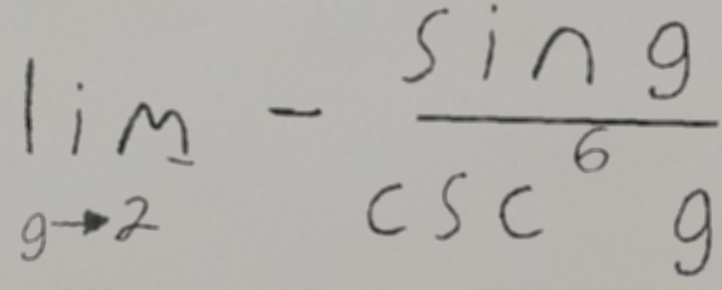 lim_{g→2} - \frac{sin g}{csc^6 g}